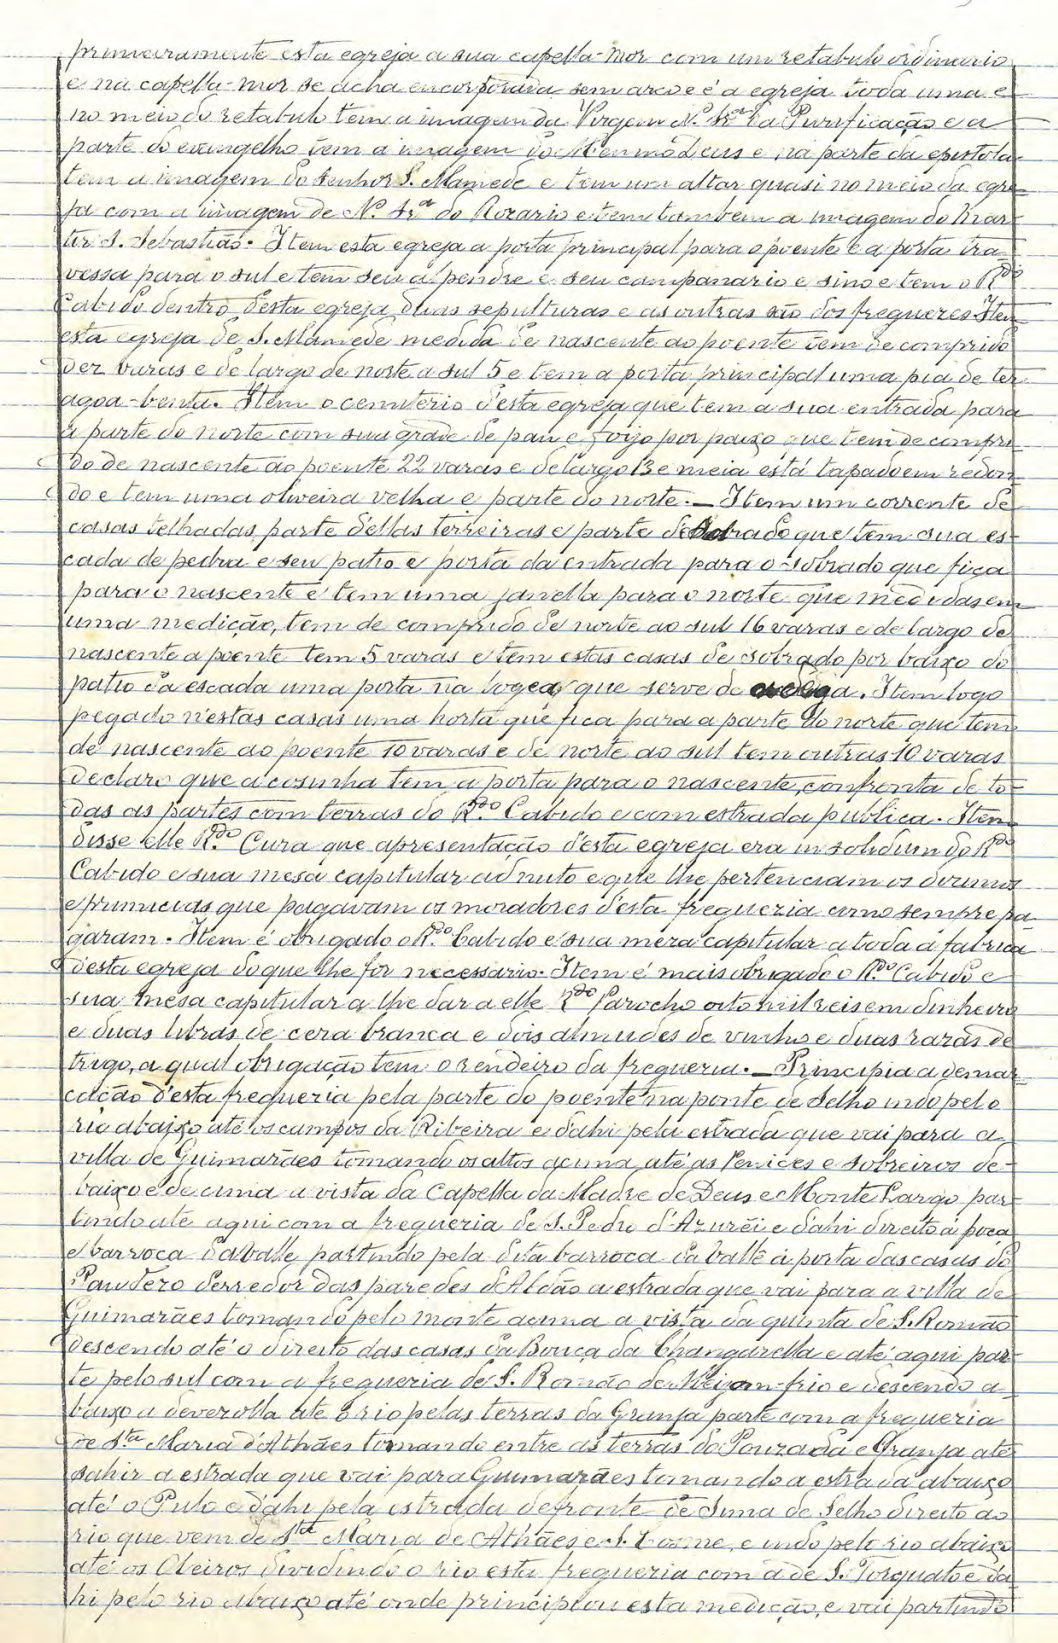 primeiramente esta egreja a sua capella-mor com um retabulo ordinario
e na capella-mor se acha encorporada sem arco e é a egreja toda uma e
no meio do retabulo tem a imagem da Virgem N. Sr.ª da Purificação e a
parte do evangelho tem a imagem do Menino Deus e na parte da epistola
tem a imagem do Senhor S. Mamede e tem um altar quasi no meio da egre-
ja com a imagem de N.ª Sr.ª do Rozario e tem tambem a imagem do Mar-
tir S. Sebastião. Item esta egreja a porta principal para o poente e a porta tra-
vessa para o sul e tem seu alpendre e seu campanario e sino e tem o R.do
Cabido dentro d'esta egreja duas sepulturas e as outras são dos freguezes Item
esta egreja de S. Mamede medida de nascente ao poente tem de comprido
dez varas e de largo de norte a sul 5 e tem a porta principal uma pia de ter
agoa-benta. Item o cemiterio d'esta egreja que tem a sua entrada para
a parte do norte com sua grade de pau e fojo por baixo que tem de compri-
do de nascente ao poente 22 varas e de largo 13 e meia está tapado em redon-
do e tem uma oliveira velha e parte do norte. — Item um corrente de
casas telhadas, parte d'ellas terreiras e parte de sobrado que tem sua es-
cada de pedra e seu patio e porta da entrada para o sobrado que fica
para o nascente e tem uma janella para o norte que medidas em
uma medição, tem de comprido de norte ao sul 16 varas e de largo de
nascente a poente tem 5 varas e tem estas casas de sobrado por baixo do
patio da escada uma porta na logea que serve de adega. Item logo
pegado n'estas casas uma horta que fica para a parte do norte que tem
de nascente ao poente 10 varas e de norte ao sul tem outras 10 varas
declaro que a cosinha tem a porta para o nascente, confronta de to-
das as partes com terras do R.do Cabido e com estrada publica. Item
disse elle R.do Cura que apresentação d'esta egreja era in solidum do R.do
Cabido e sua mesa capitular ad nuto e que lhe pertenciam os dizimos
e primicias que pagavam os moradores d'esta freguezia como sempre pa-
garam. Item é obrigado o R.do Cabido e sua meza capitular a toda a fabrica
d'esta egreja do que lhe for necessario. Item é mais obrigado o R.do Cabido e
sua mesa capitular a lhe dar a elle R.do Parocho oito mil reis em dinheiro
e duas libras de cera branca e dois almudes de vinho e duas razas de
trigo, a qual obrigação tem o rendeiro da freguezia. — Principia a demar-
cação d'esta freguezia pela parte do poente na ponte de Selho indo pelo
rio abaixo até os campos da Ribeira e d'ahi pela estrada que vai para a
villa de Guimarães tomando os altos acima até as Penices e sobreiros de-
baixo e de cima a vista da Capella da Madre de Deus e Monte Largo par-
tindo até aqui com a freguezia de S. Pedro d'Azurêi e d'ahi direito á poça
e barroca da valle partindo pela dita barroca da valle á porta das casas do
Pau derredor das paredes d'Aldão a estrada que vai para a villa de
Guimarães tomando pelo monte acima a vista da quinta de S. Romão
descendo até o direito das casas da Bouça da Changarella e até aqui par-
te pelo sul com a freguezia de S. Romão de Meijom-frio e descendo a-
baixo a até o rio pelas terras da Granja parte com a freguezia
de S.ta Maria d'Athães tomando entre as terras do Pouzada e Granja até
sahir a estrada que vai para Guimarães tomando a estrada abaixo
até o Pulo e d'ahi pela estrada defronte de Cima de Selho direito ao
rio que vem de S.ta Maria de Athães e S. Cosme, e indo pelo rio abaixo
até os Oleiros dividindo o rio esta freguezia com a de S. Torquato e da-
hi pelo rio abaixo até onde principiou esta medição, e vai partindo